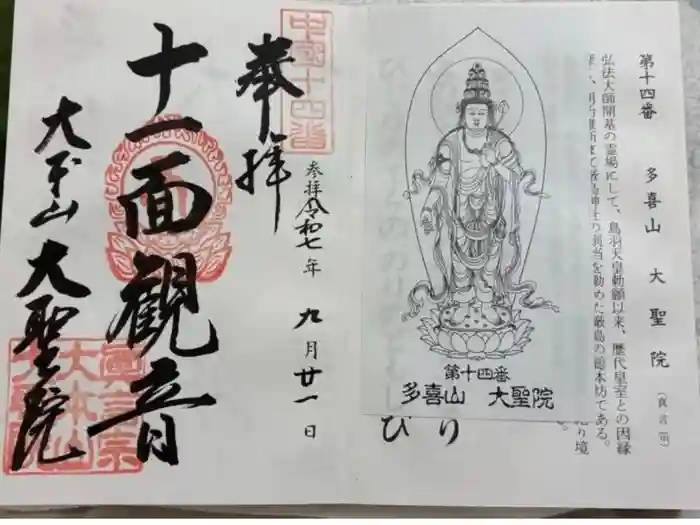 第十四番　多喜山　大聖院（真言宗）
弘法大師開基の霊場にして、鳥羽天皇勅願以来、歴代皇室との因縁
の別当を勤めた厳島の総本坊である。
境
り
び
第十四番
多喜山　大聖院
中国十四番
奉拝
参拝令和七年九月廿一日
十一面観音
大本山大聖院
真言宗
大本山
大聖院